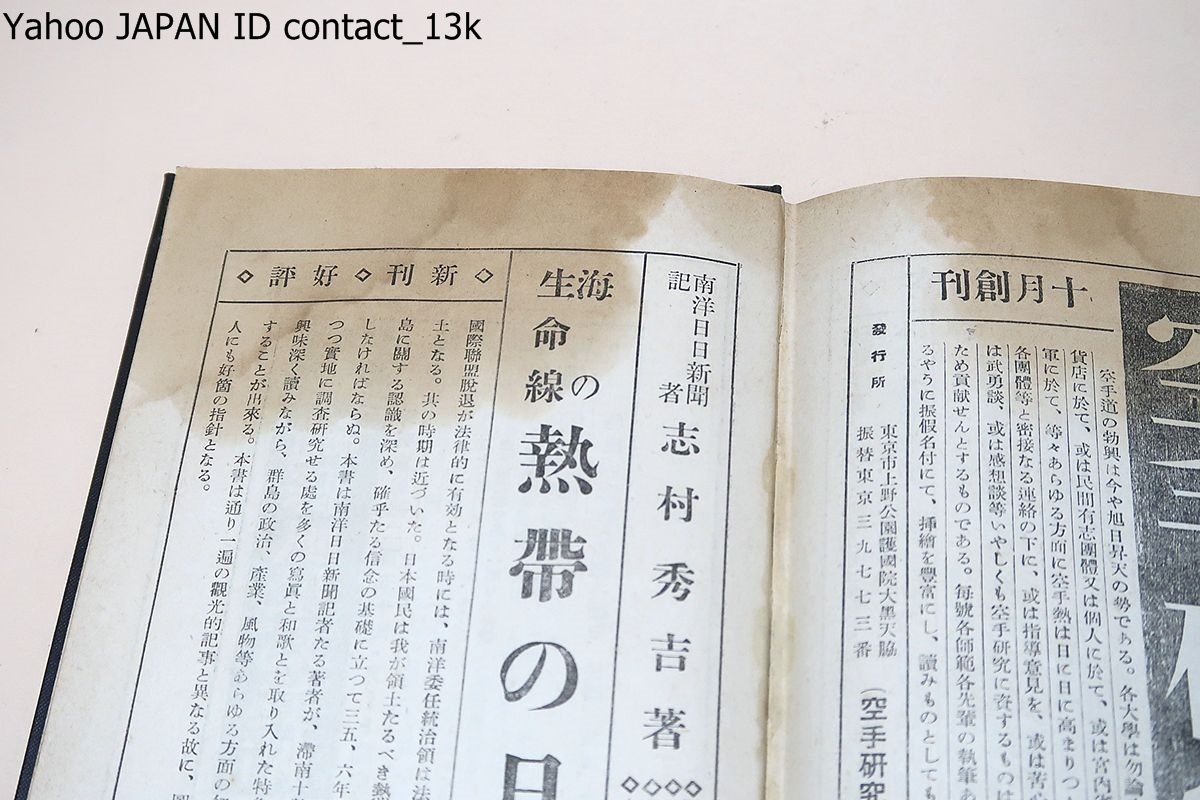 Yahoo JAPAN ID contact_13k
十月創刊
空手道の勃興は今や旭日昇天の勢である。各大學は勿論
貨店に於て、或は民間有志團體又は個人に於て、或は宮内省
軍に於て、等々あらゆる方面に空手熱は日に日に高まりつ
各團體等と密接なる連絡の下に、或は指導意見を、或は苦
は武勇談、或は感想談等いやしくも空手研究に資するものは
ため貢獻せんとするものである。毎號各師範各先輩の執筆あ
るやうに振假名付にて、挿繪を豐富にし、讀みものとしても
發行所
東京市上野公園護國院大黑天脇
振替東京三九七七三番
(空手研究
南洋日日新聞記者 志村秀吉著
海の生命線 熱帶の日
◇新刊◇好評◇
國際聯盟脱退が法律的に有効となる時には、南洋委任統治領は法
土となる。其の時期は近づいた。日本國民は我が領土たるべき熱
島に關する認識を深め、確乎たる信念の基礎に立つて三五、六年
しなければならぬ。本書は南洋日日新聞記者たる著者が、滯南十
つつ實地に調査研究せる處を多くの寫眞と和歌とを取り入れた特
興味深く讀みながら、群島の政治、産業、風物等あらゆる方面の
することが出來る。本書は通り一遍の觀光的記事と異なる故に、
人にも好箇の指針となる。